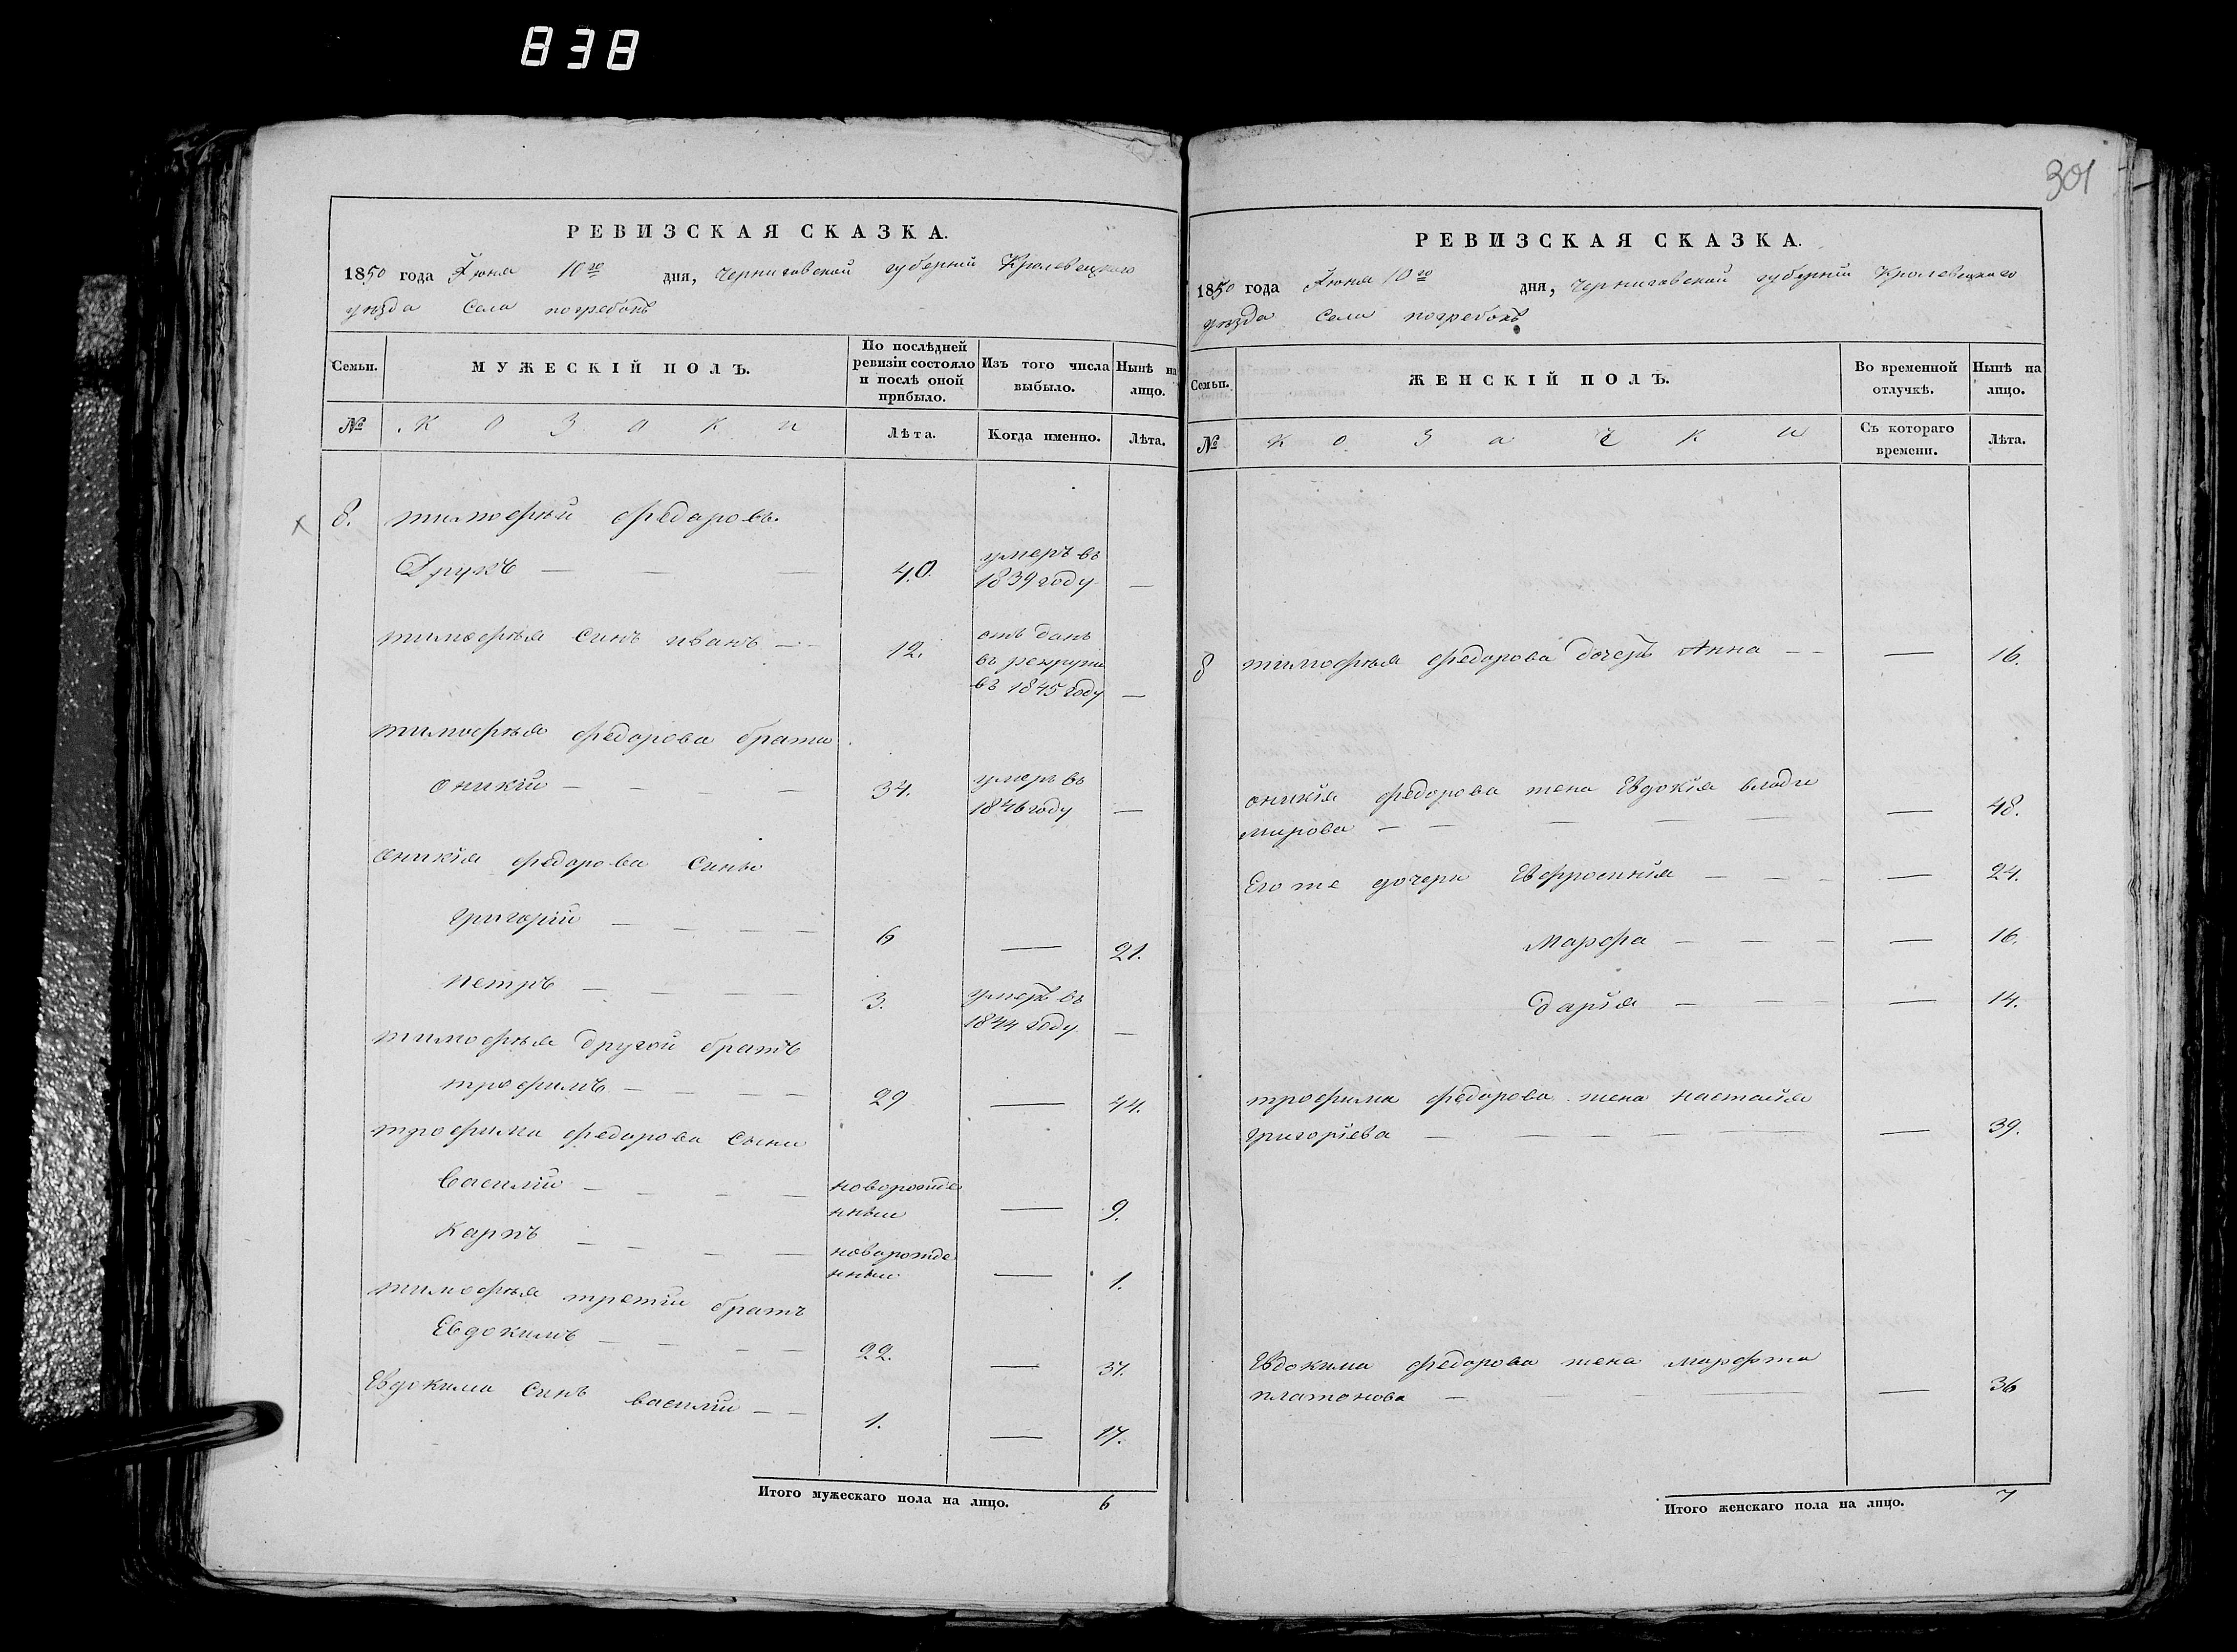 838
301
РЕВИЗСКАЯ СКАЗКА.
1850 года Іюня 10го дня, Черниговской губерніи Кролевецкаго
уезда Села погребокъ
Семьи. МУЖЕСКІЙ ПОЛЪ. По послѣдней ревизіи состояло и послѣ оной прибыло. Изъ того числа выбыло. Нынѣ на лицо.
№ Козаки Лѣта. Когда именно. Лѣта.
8. тимофей федоровъ
Друкъ — — — 40. умеръ въ
1839 году —
тимофея синъ иванъ — — 12. отъ данъ
въ рекруты
въ 1845 году —
тимофея федорова брати
оникій — — — — 34. умеръ въ
1846 году —
оникія федорова Сины
григорій — — — — 6 — 21.
петръ — — — — 3. умеръ въ
1844 году —
тимофея другой братъ
трофимъ — — — 29 — 44.
трофима федорова Сыни
Василій — — — — новорожде
нный — 9.
Карпъ — — — — новорожде
нный — 1.
тимофея третій братъ
Евдокимъ — — — 22. — 37.
Евдокима Синъ василій — — 1. — 17.
Итого мужескаго пола на лицо. 6
РЕВИЗСКАЯ СКАЗКА.
1850 года Іюня 10го дня, Черниговской губерніи Кролевецкаго
уезда Села погребокъ
Семьи. ЖЕНСКІЙ ПОЛЪ. Во временной отлучкѣ. Нынѣ на лицо.
№ козачки Съ котораго времени. Лѣта.
8 тимофея федорова дочеръ Анна — — — 16.
оникія федорова жена Евдокія влади
мирова — — — — — — 48.
Его же дочери Евфросинія — — — — 24.
Марфа — — — — 16.
Дарія — — — — 14.
трофима федорова жена настасія
григоріева — — — — — — 39.
Евдокима федорова жена марфта
платонова — — — — 36
Итого женскаго пола на лицо. 7